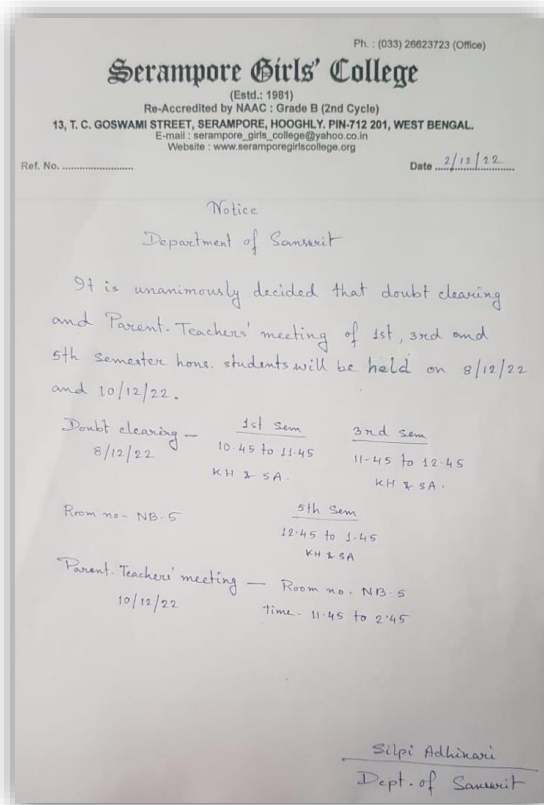 Ph. : (033) 26623723 (Office)
Serampore Girls' College
(Estd.: 1981)
Re-Accredited by NAAC : Grade B (2nd Cycle)
13, T. C. GOSWAMI STREET, SERAMPORE, HOOGHLY. PIN-712 201, WEST BENGAL.
E-mail : serampore_girls_college@yahoo.co.in
Website : www.seramporegirlscollege.org
Ref. No. ........................ Date 2/12/22
Notice
Department of Sanskrit
It is unanimously decided that doubt clearing
and Parent-Teachers' meeting of 1st, 3rd and
5th semester hons. students will be held on 8/12/22
and 10/12/22.
Doubt clearing — 1st Sem 3rd Sem
8/12/22 10.45 to 11.45 11-45 to 12.45
KH & SA. KH & SA.
Room no- NB-5 5th Sem
12.45 to 1.45
KH & SA
Parent-Teachers' meeting — Room no. NB-5
10/12/22 Time- 11-45 to 2.45
Silpi Adhikari
Dept. of Sanskrit